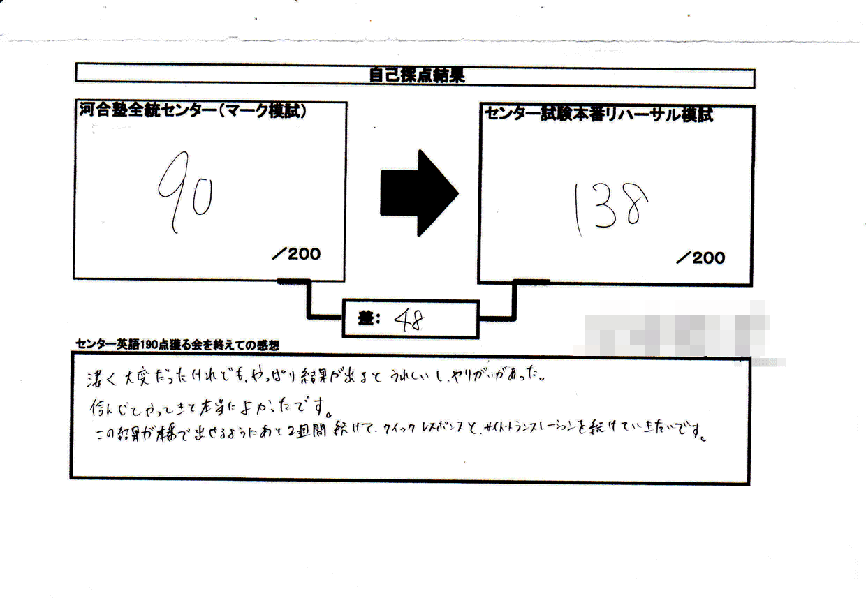 自己採点結果
河合塾全統センター(マーク模試)
90
/200
センター試験本番リハーサル模試
138
/200
差: 48
センター英語190点獲る会を終えての感想
凄く大変だったけれども、やっぱり結果が出るとうれしいし、やりがいがあった。
信じてやってきて本当によかったです。
この結果が本番で出せるようにあと2週間続けて、クイックレスポンスと、サイトトランスレーションを続けていきたいです。